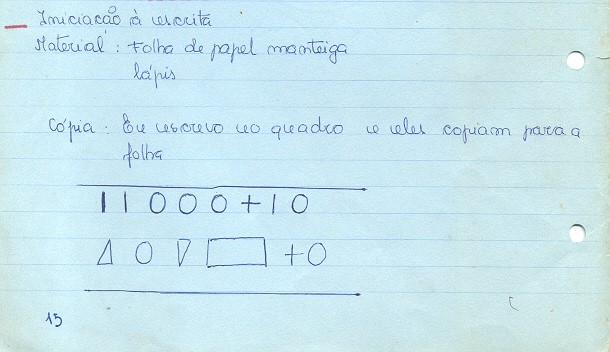 Iniciação à escrita
Material : Folha de papel manteiga
lápis
Cópia : Eu escrevo no quadro e eles copiam para a
folha
1 1 0 0 0 + 1 0
Δ O ▽ ▭ + O
15